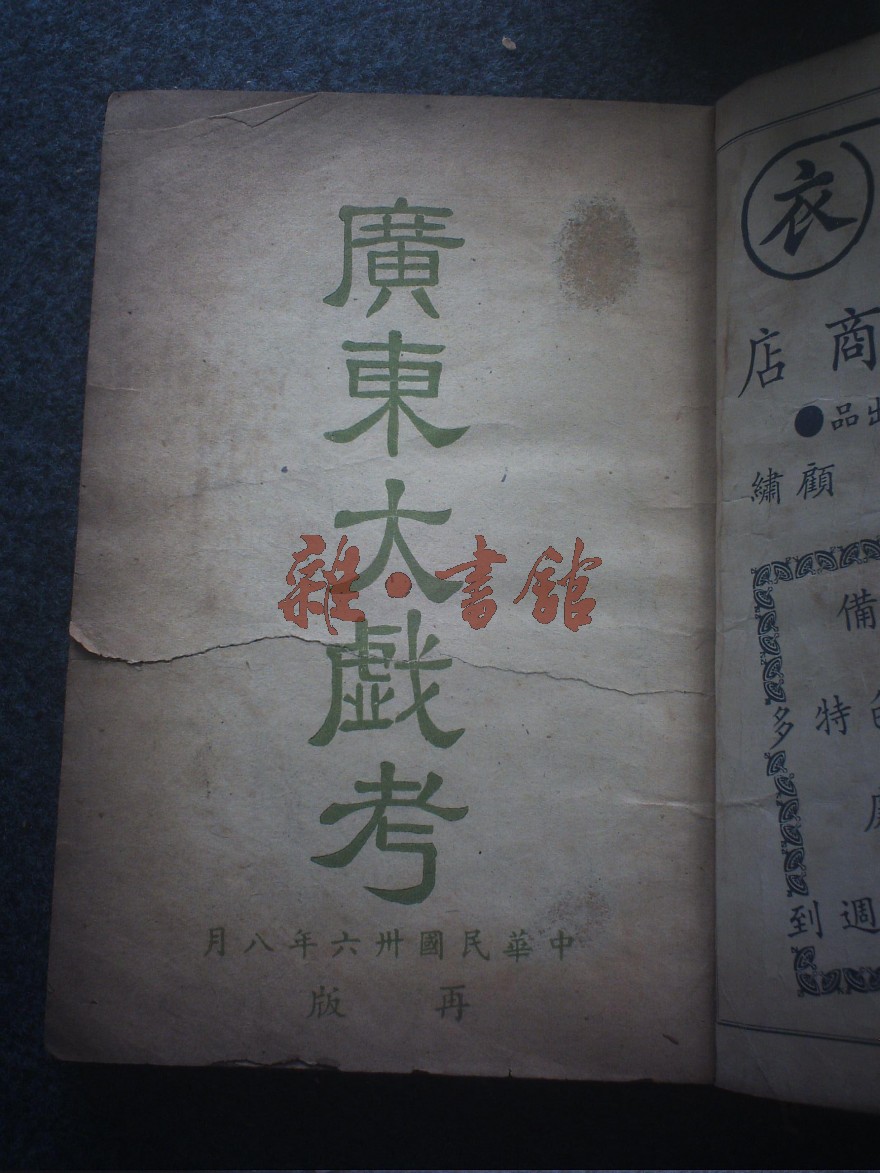 廣東大戲考
雜·書館
中華民國卅六年八月
再版
衣
商店
出品●
顧繡
備
特多
週到